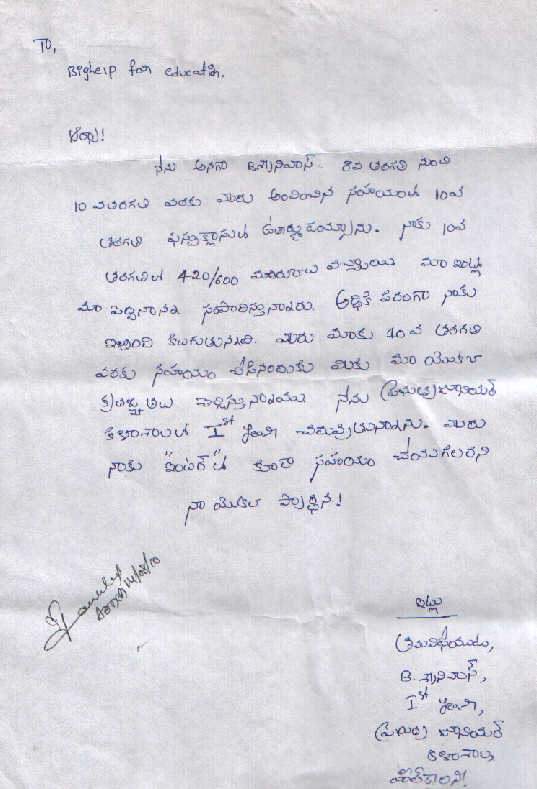 To,
Bighelp for education.
అయ్యా!
నేను అనగా బి.శ్రీనివాస్. 8వ తరగతి నుంచి
10 వతరగతి వరకు మీరు అందించిన సహాయంతో 10వ
తరగతి ఫస్టుక్లాసులో ఉత్తీర్ణుడయ్యాను. నాకు 10వ
తరగతిలో 420/600 మార్కులు వచ్చాయి మా ఇంట్లో
మా పెద్దనాన్న సంపాదిస్తున్నారు. ఆర్థిక పరంగా నాకు
ఇబ్బంది కలుగుతున్నది. మీరు మాకు 10వ తరగతి
వరకు సహాయం చేసినందుకు మీకు మా యొక్క
కృతజ్ఞతలు నేను (ప్రభుత్వ) జూనియర్
కళాశాలలో Ist చదువుతున్నాను. మీరు
నాకు "ఇంటర్" లో కూడా సహాయం చేయగలరని
నా యొక్క ప్రార్థన!
ఇట్లు
తమవిధేయుడు,
బి. శ్రీనివాస్,
Ist
(ప్రభుత్వ) జూనియర్
కళాశాల,